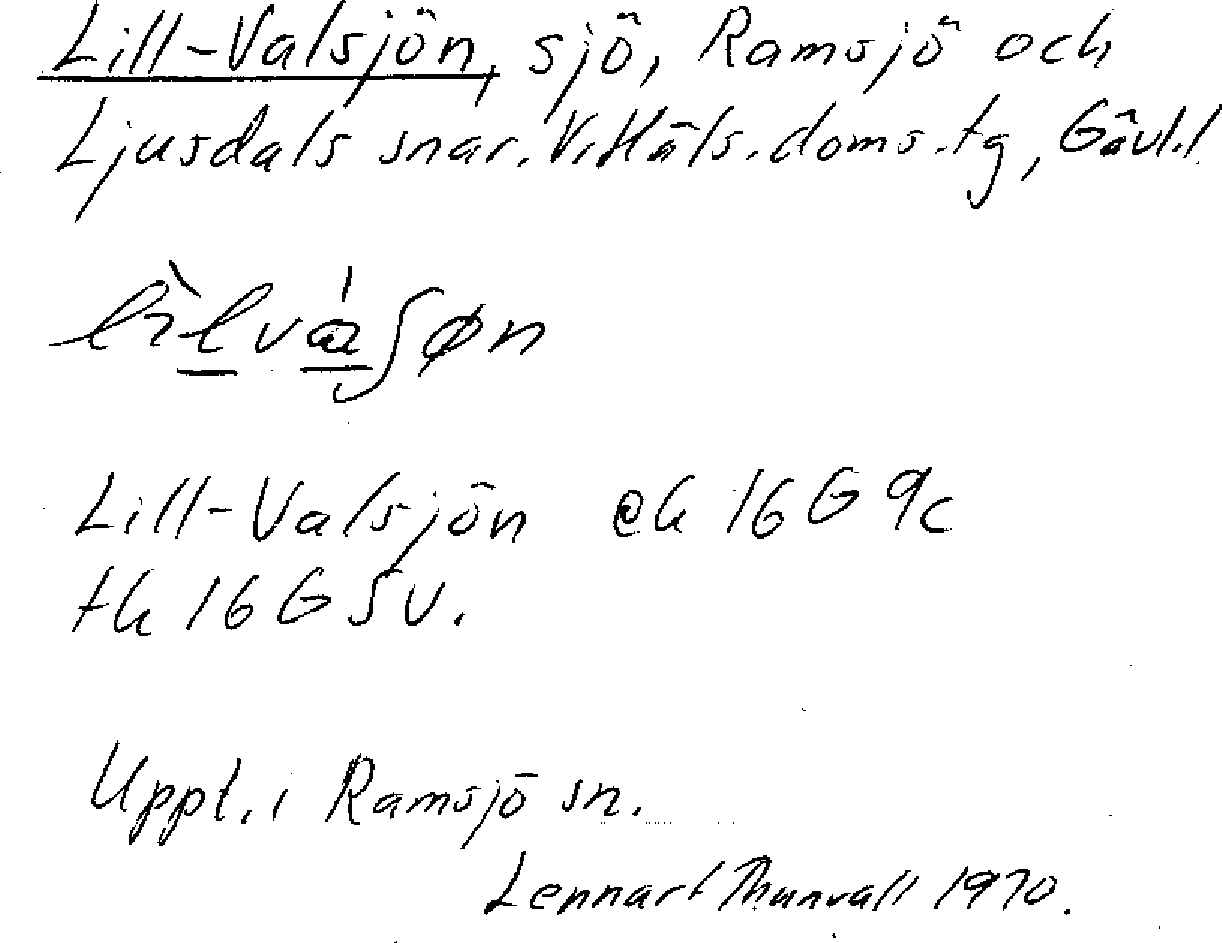 Lill-Valsjön, sjö, Ramsjö och
Ljusdals snar. V. Häls. doms.tg, Gävl.l.
lìlvá̱ʃøn
Lill-Valsjön ek 16G 9c
tk 16G SV.
Uppt. i Ramsjö sn.
Lennart Thunvall 1970.